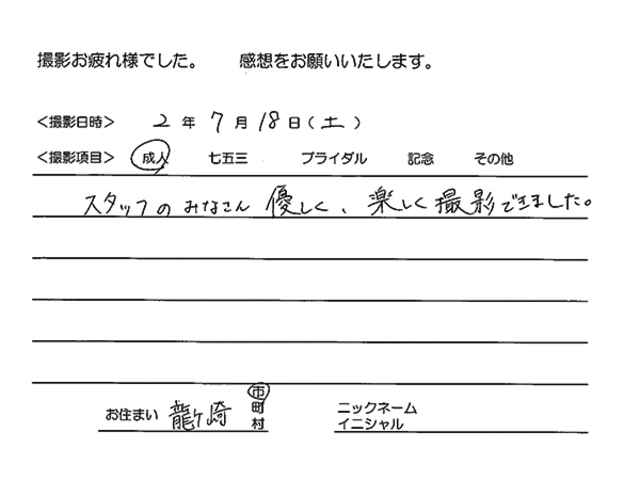 撮影お疲れ様でした。　感想をお願いいたします。
＜撮影日時＞ 2 年 7 月 18 日（土）
＜撮影項目＞ 成人 七五三 ブライダル 記念 その他
スタッフのみなさん優しく、楽しく撮影できました。
お住まい 龍ケ崎 市町村 ニックネーム イニシャル